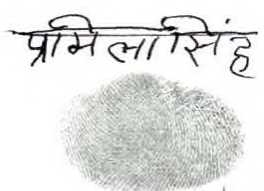 प्रमिला सिंह